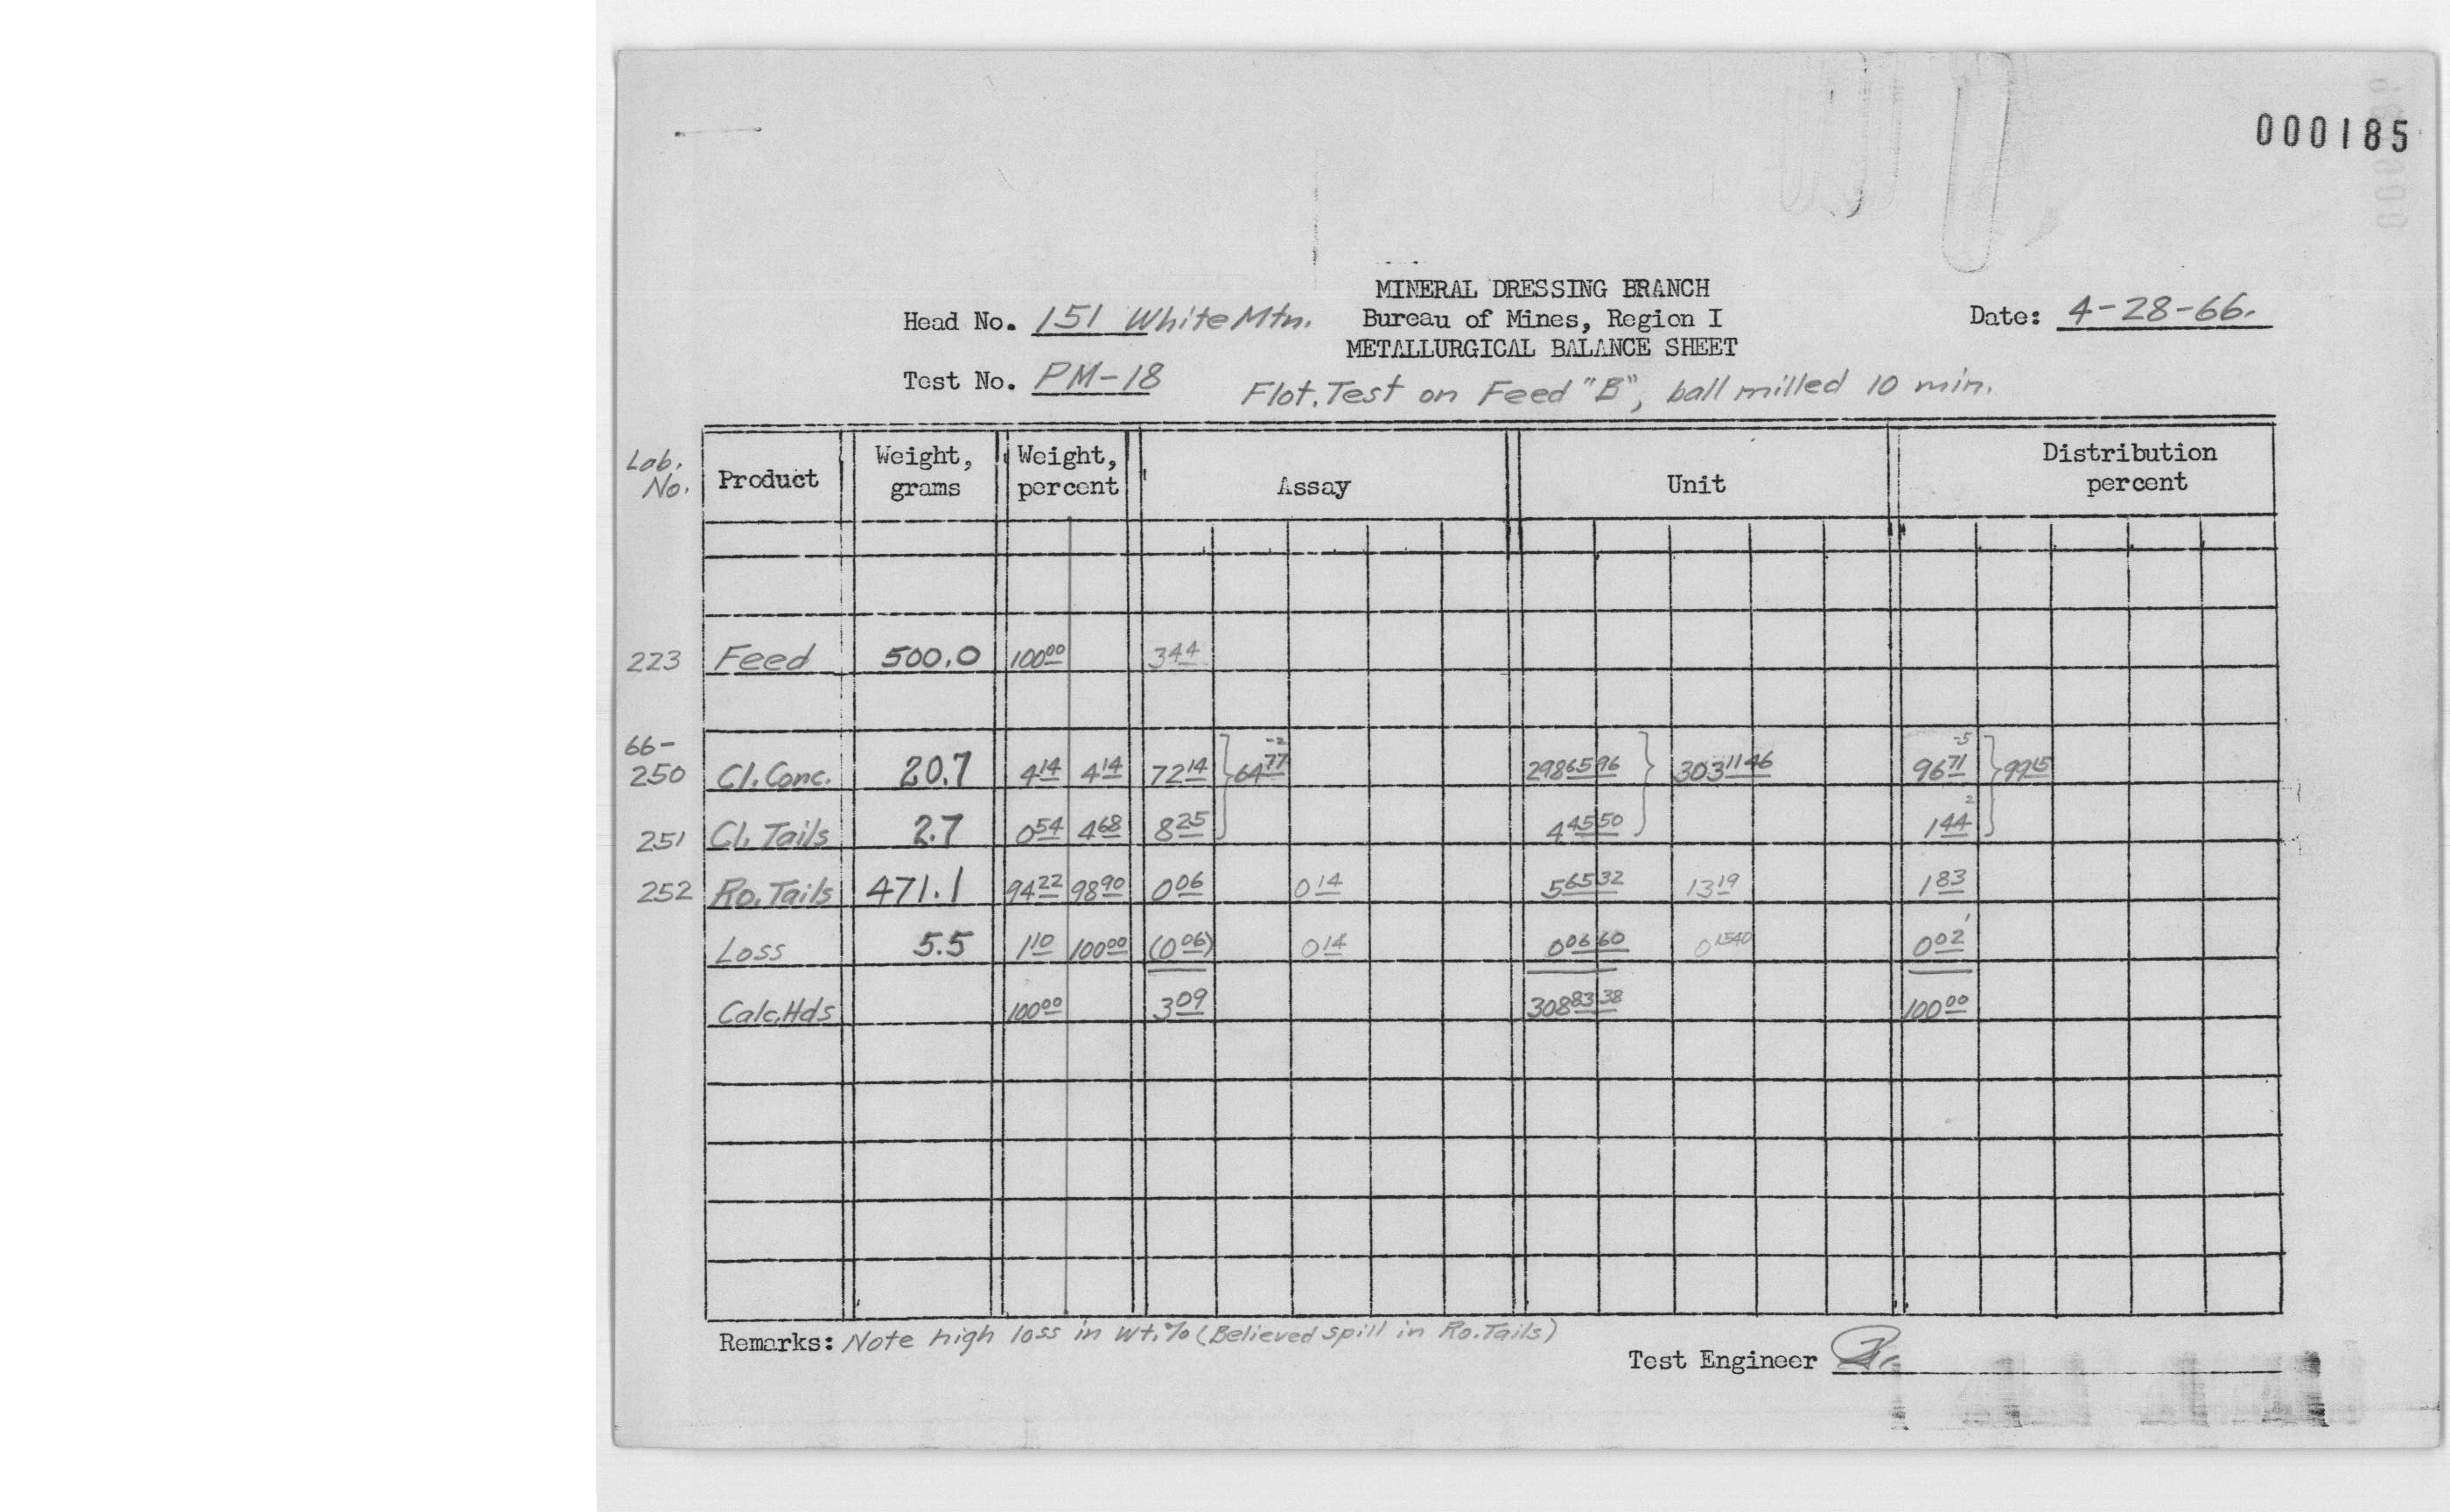 000185
MINERAL DRESSING BRANCH
Head No. 151 White Mtn. Bureau of Mines, Region I Date: 4-28-66.
METALLURGICAL BALANCE SHEET
Test No. PM-18 Flot. Test on Feed "B", ball milled 10 min.
Lab. No. Product Weight, grams Weight, percent Assay Unit Distribution percent
223 Feed 500.0 100 00 3 44
66-
-2 -5
250 Cl. Conc. 20.7 4 14 4 14 72 14 } 64 77 298 65 96 } 303 11 46 96 71 } 99 15
2
251 Cl. Tails 2.7 0 54 4 68 8 25 4 45 50 1 44
252 Ro. Tails 471.1 94 22 98 90 0 06 0 14 5 65 32 13 19 1 83
Loss 5.5 1 10 100 00 (0 06) 0 14 0 06 60 0 1540 0 02
Calc. Hds 100 00 3 09 308 83 38 100 00
Remarks: Note high loss in Wt. % (Believed spill in Ro. Tails)
Test Engineer